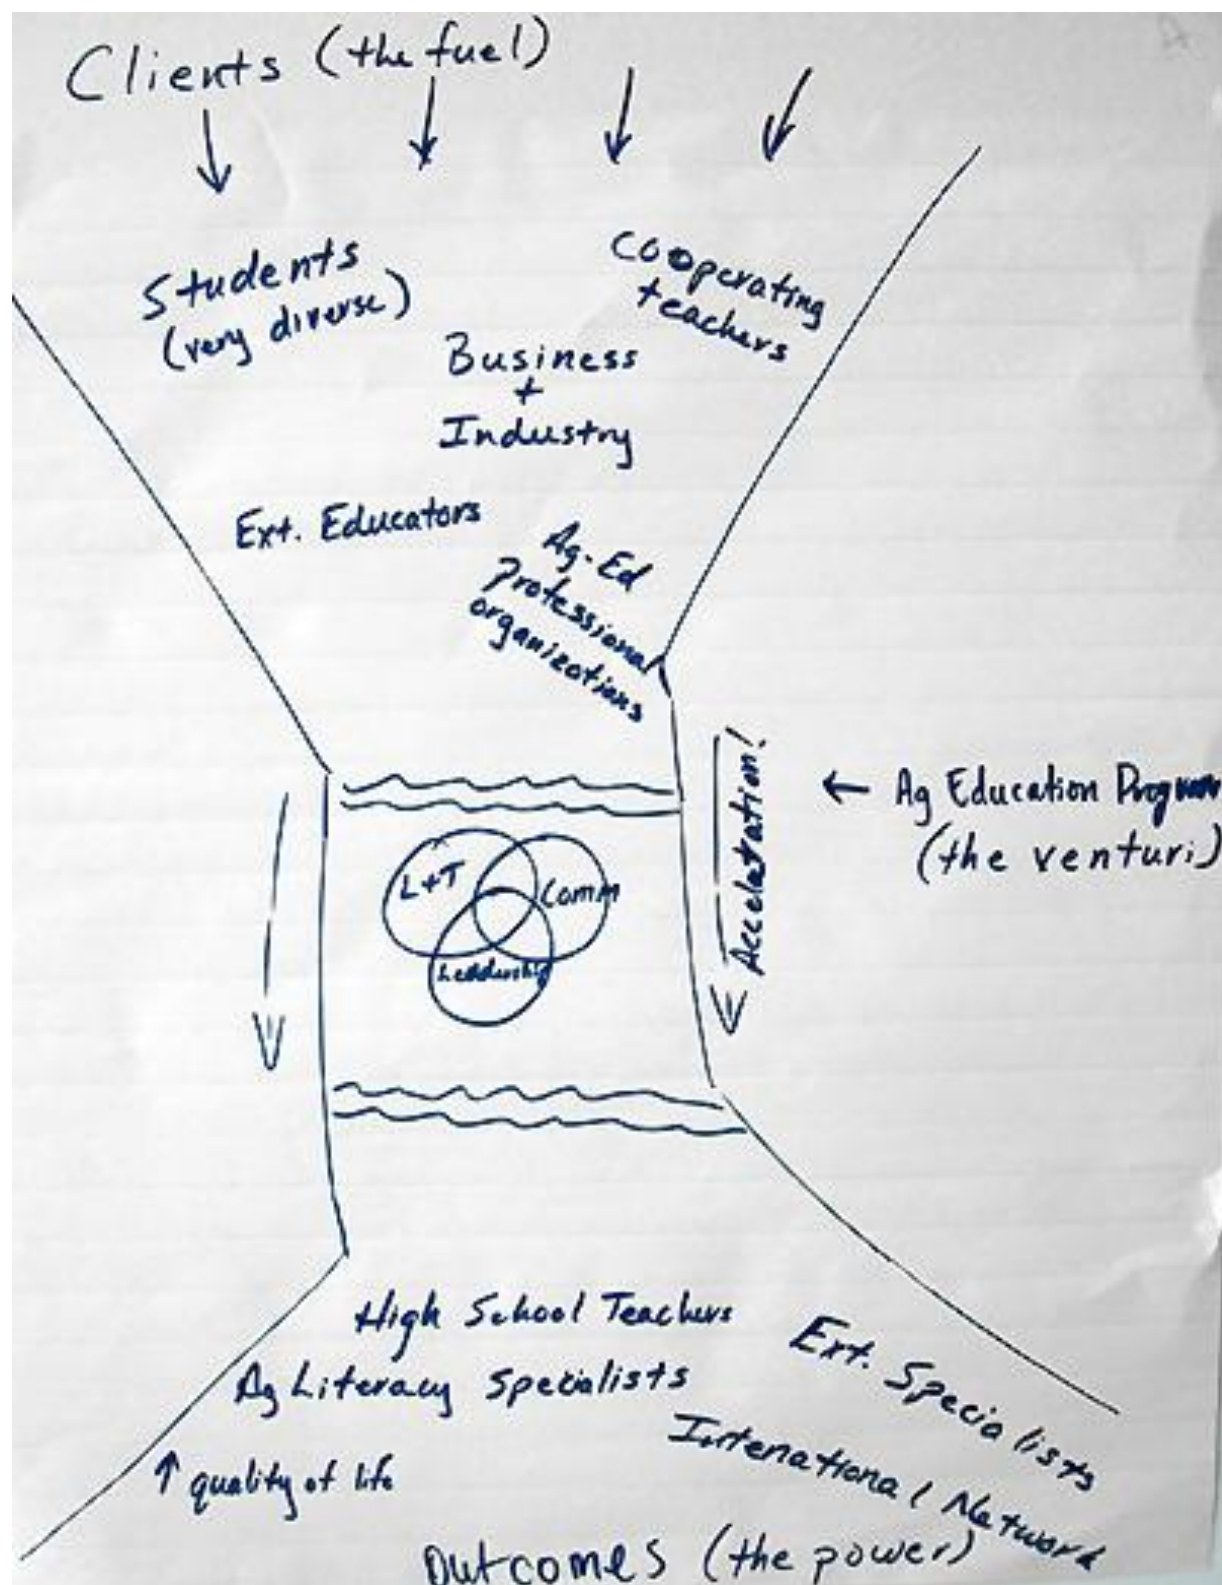 Clients (the fuel)
Students
(very diverse)
Cooperating
teachers
Business
+
Industry
Ext. Educators
Ag-Ed
professional
organizations
Accelatation!
← Ag Education Program
(the venturi)
L+T
Comm
Leadership
High School Teachers
Ag Literacy Specialists
Ext. Specialists
International Network
↑ quality of life
Outcomes (the power)